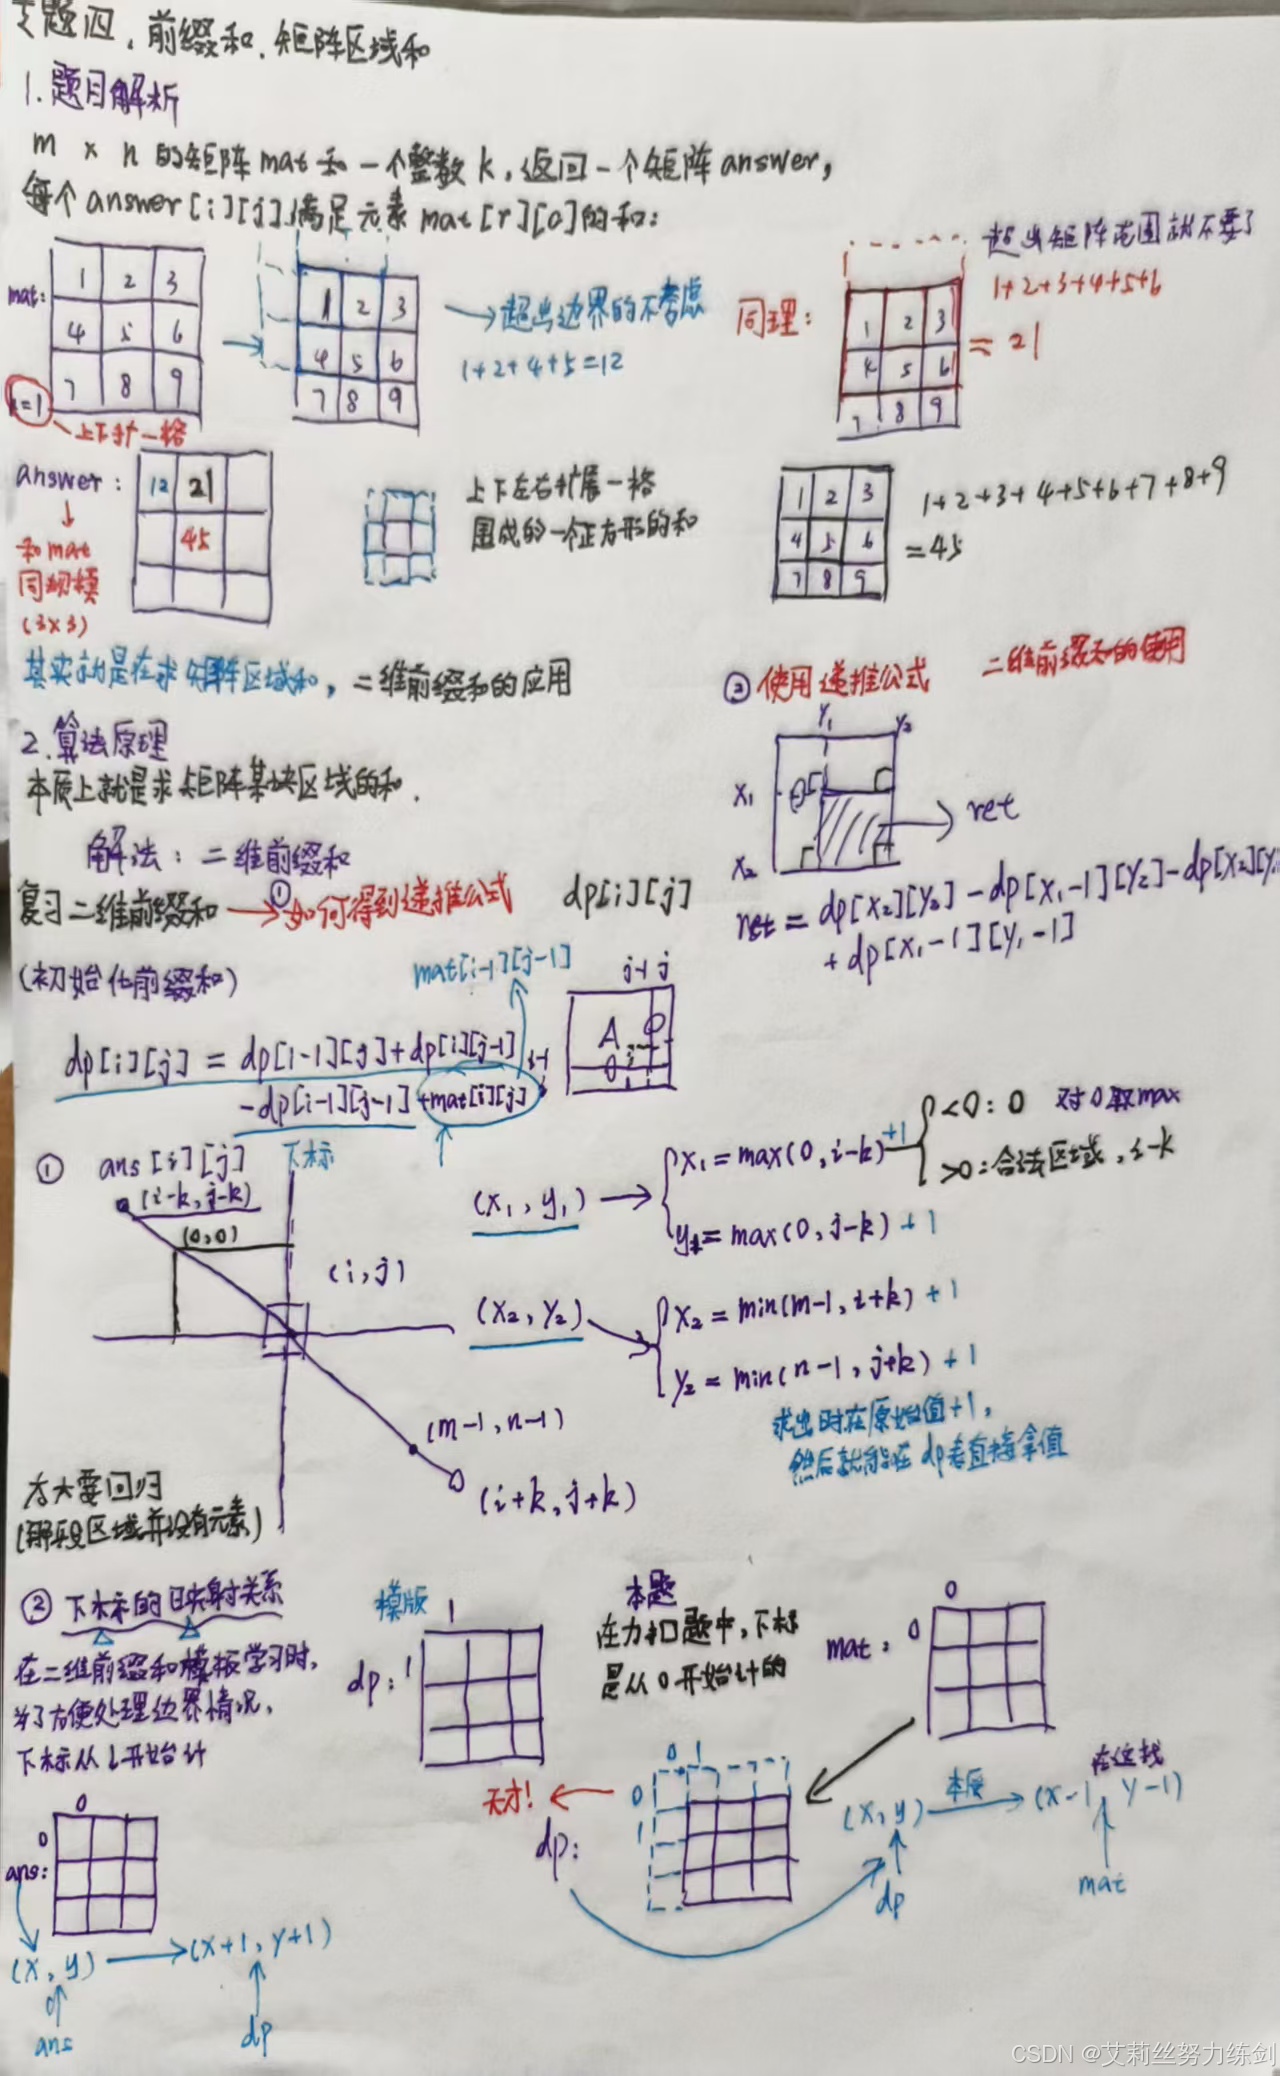 专题四、前缀和、矩阵区域和
1.题目解析
m × n 的矩阵mat和一个整数k,返回一个矩阵answer,
每个answer[i][j]满足元素mat[r][c]的和:
mat:
1 2 3
4 5 6
7 8 9
k=1
上下扩一格
1 2 3
4 5 6
7 8 9
超出边界的不考虑
1+2+4+5=12
同理:
超出矩阵范围就不要了
1+2+3+4+5+6
= 21
1 2 3
4 5 6
7 8 9
answer:
和mat
同规模
(3×3)
12 21
45
上下左右扩展一格
围成的一个正方形的和
1 2 3
4 5 6
7 8 9
1+2+3+4+5+6+7+8+9
=45
其实就是在求矩阵区域和,二维前缀和的应用
2.算法原理
本质上就是求矩阵某块区域的和.
解法:二维前缀和
复习二维前缀和
①如何得到递推公式
dp[i][j]
(初始化前缀和)
mat[i-1][j-1]
j-1 j
A
i-1
dp[i][j] = dp[i-1][j]+dp[i][j-1]
-dp[i-1][j-1]+mat[i][j]
②使用递推公式
二维前缀和的使用
y1 y2
x1
x2
ret
ret = dp[x2][y2]-dp[x1-1][y2]-dp[x2][y
+dp[x1-1][y1-1]
① ans[i][j]
下标
(i-k,j-k)
(0,0)
(i,j)
(m-1,n-1)
(i+k,j+k)
(x1,y1)
x1=max(0,i-k)+1
y1=max(0,j-k)+1
<0:0 对0取max
>0:合法区域,i-k
(x2,y2)
x2=min(m-1,i+k)+1
y2=min(n-1,j+k)+1
求出时在原始值+1,
然后就能在dp表直接拿值
太大要回归
(那段区域并没有元素)
②下标的映射关系
在二维前缀和模板学习时,
为了方便处理边界情况,
下标从1开始计
模版
1
dp: 1
本题
在力扣题中,下标
是从0开始计的
0
mat: 0
0 1
0
1
dp:
天才!
(x,y)
本质
在这找
(x-1,y-1)
dp
mat
0
0
ans:
(x,y)
(x+1,y+1)
ans
dp
CSDN @艾莉丝努力练剑